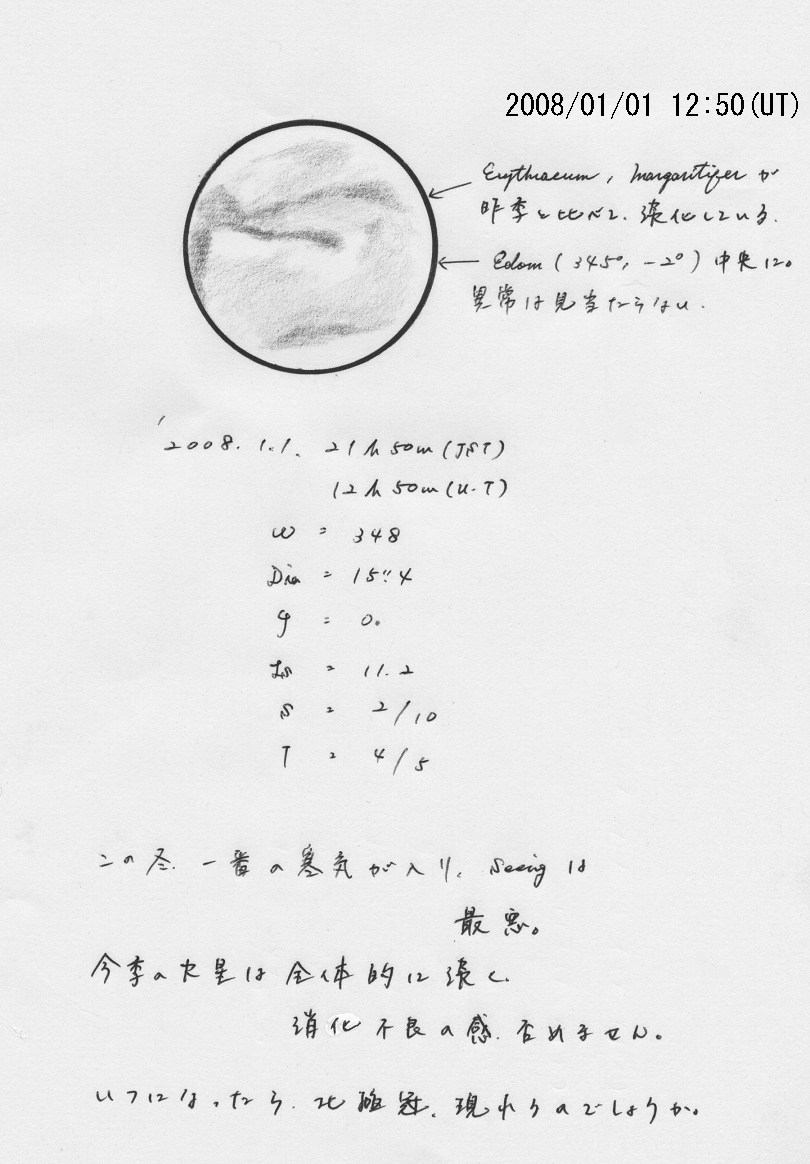 2008/01/01 12:50(UT)
Erythraeum, Margaritifer が
昨季と比べて、淡化している.
Edom (345°, -2°) 中央に。
異常は見当たらない.
'2008. 1. 1. 21h 50m (JST)
12h 50m (U.T)
ω = 348
Dia = 15".4
φ = 0。
Ls = 11.2
S = 2/10
T = 4/5
この冬、一番の寒気が入り、Seeing は
最悪。
今季の火星は全体的に淡く、
消化不良の感、否めません。
いつになったら、北極冠、現れるのでしょうか。